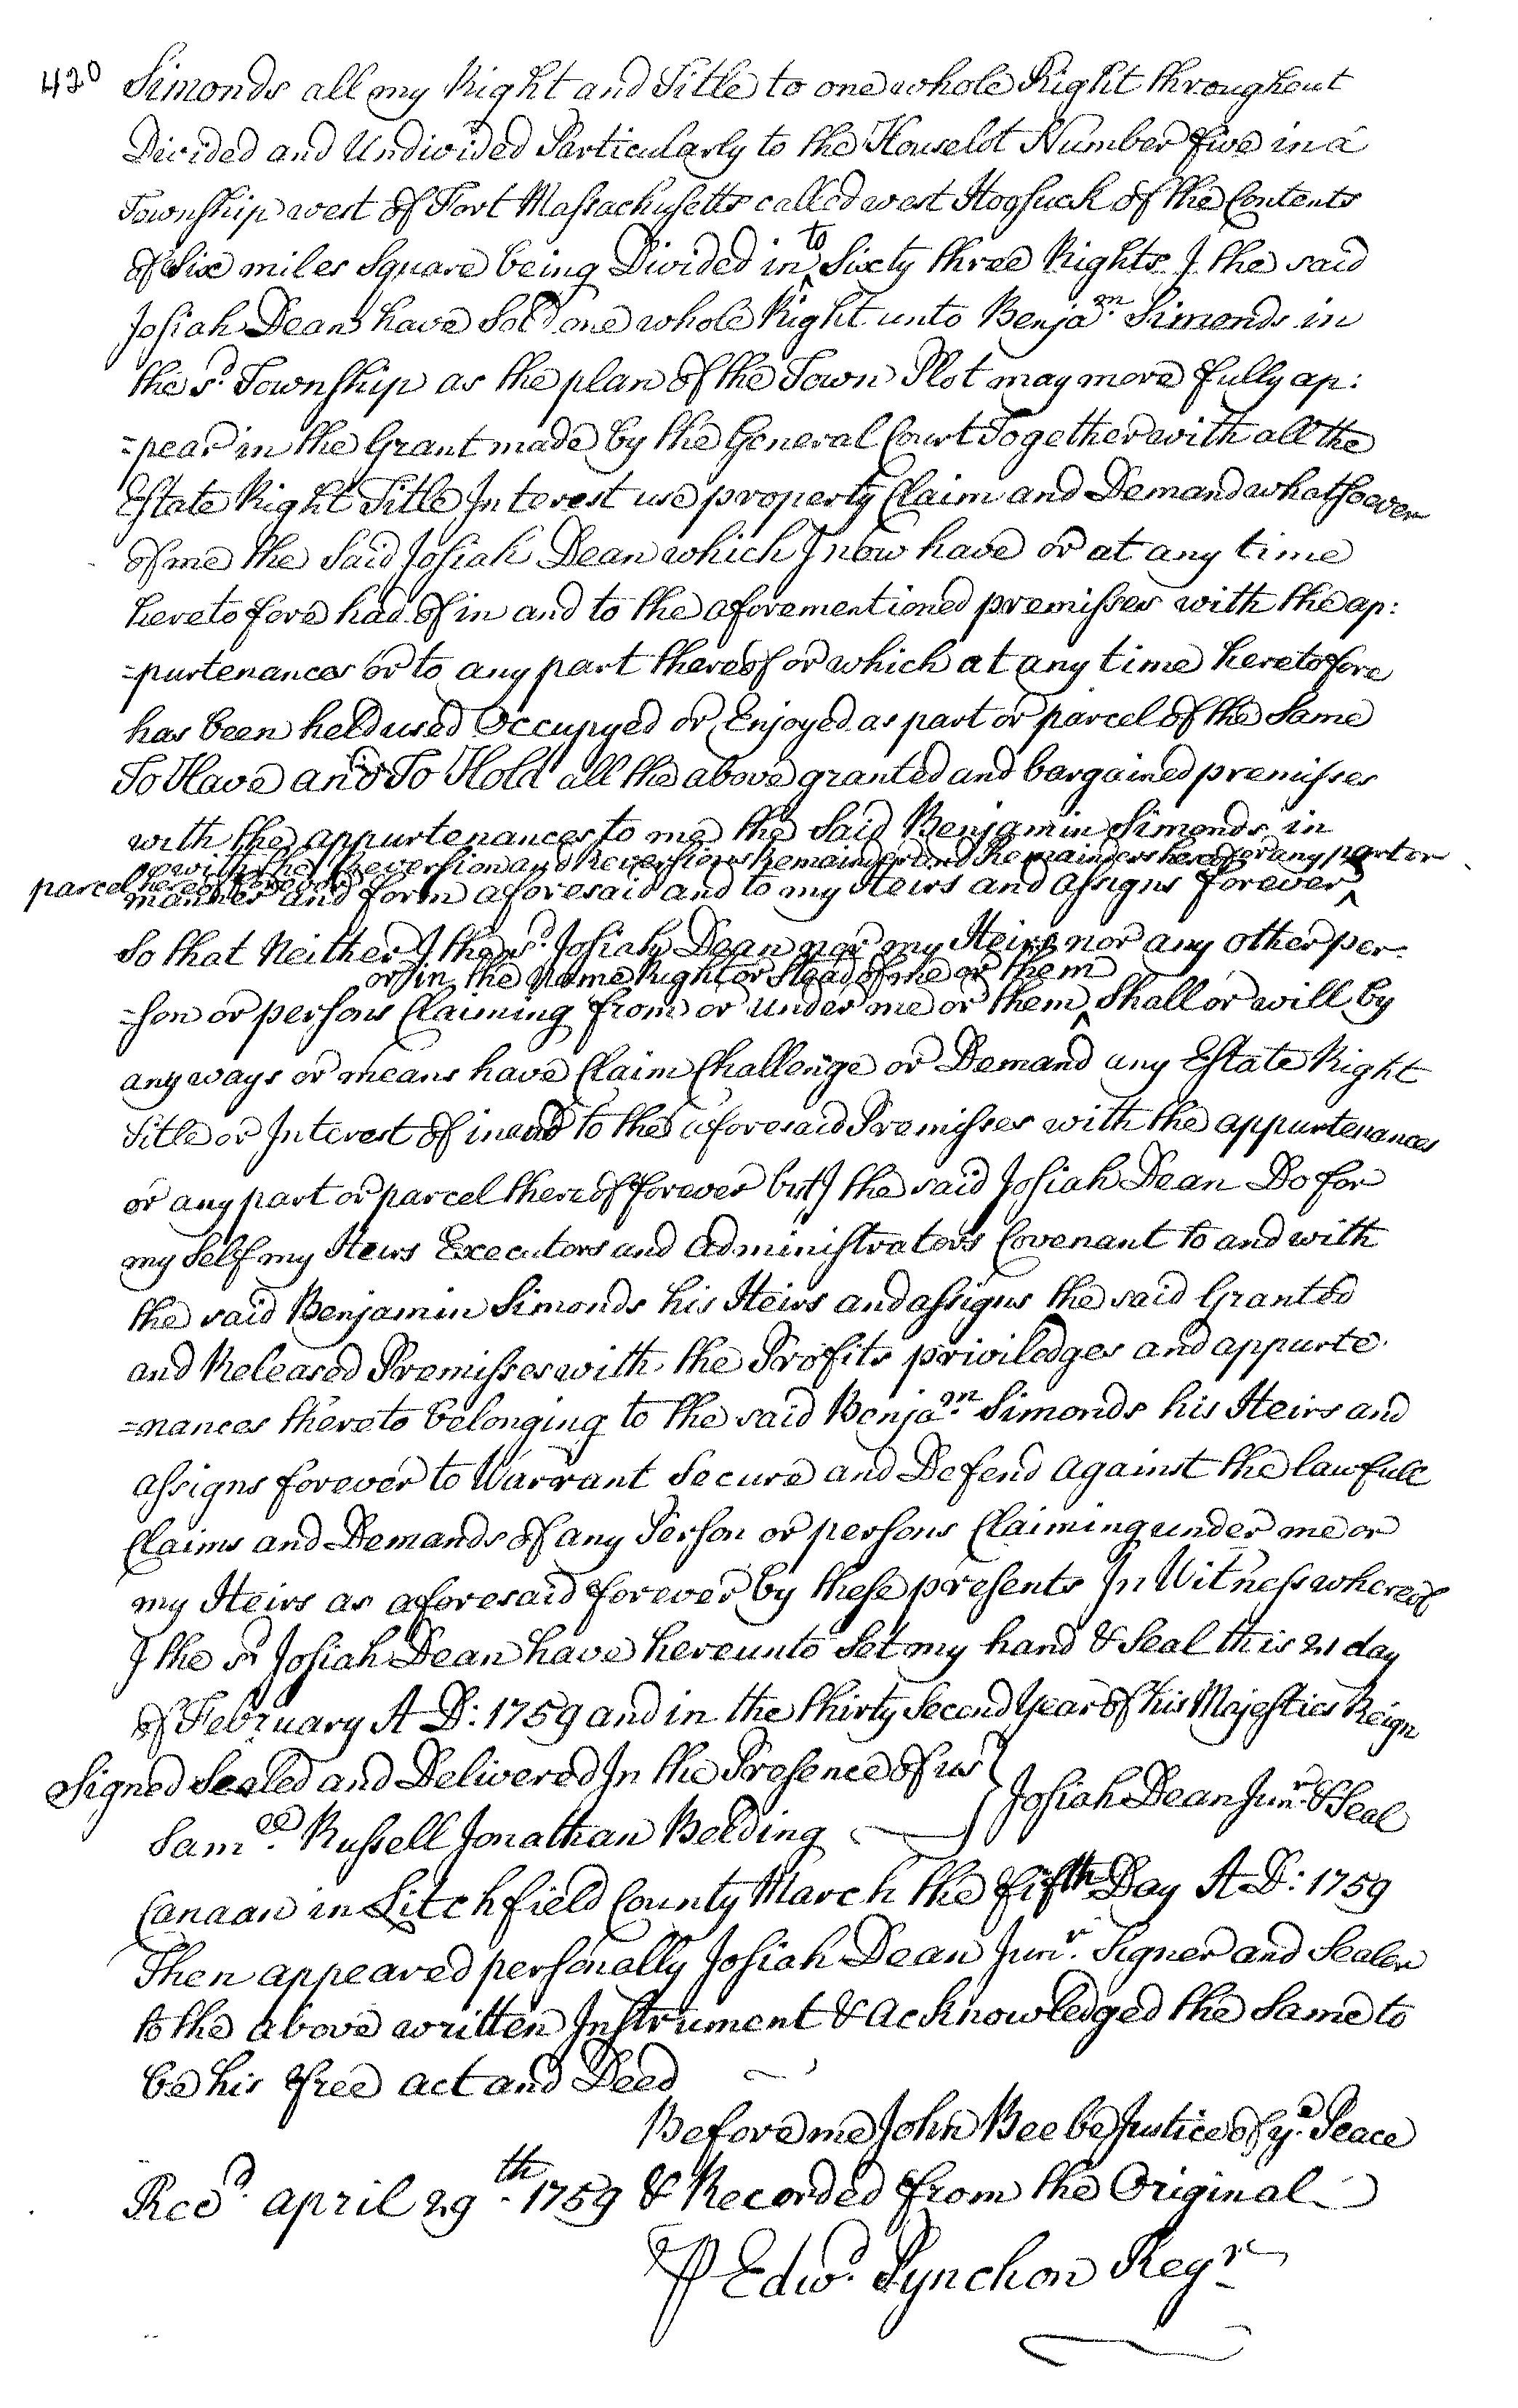 420
Simonds all my Right and Title to one whole Right throughout
Divided and Undivided Particularly to the Houselot Number five in a
Township west of Fort Massachusetts called west Hoosuck of the Contents
of Six miles Square being Divided in to Sixty three Rights I the said
Josiah Dean have Sold one whole Right unto Benja.m Simonds in
the s.d Township as the plan of the Town Plot may more fully ap:
=pear in the Grant made by the General Court Together with all the
Estate Right Title Interest use property Claim and Demand whatsoever
of me the Said Josiah Dean which I now have or at any time
heretofore had of in and to the aforementioned premisses with the ap:
=purtenances or to any part thereof or which at any time heretofore
has been held used Occupyed or Enjoyed as part or parcel of the Same
To Have and To Hold all the above granted and bargained premisses
with the appurtenances to me the Said Benjamin Simonds in
with the Reversion and Reversions Remainder and Remainders hereof or any part or
parcel hereof forever
manner and form aforesaid and to my Heirs and assigns forever
So that Neither I the s.d Josiah Dean nor my Heirs nor any other per-
or in the Name Right or Stead of me or them
=son or persons Claiming from or under me or them Shall or will by
any ways or means have Claim Challenge or Demand any Estate Right
Title or Interest of in and to the aforesaid Premisses with the appurtenances
or any part or parcel thereof forever but I the said Josiah Dean Do for
my Self my Heirs Executors and Administrators Covenant to and with
the said Benjamin Simonds his Heirs and assigns the said Granted
and Released Premisses with the Profits priviledges and appurte
=nances thereto belonging to the said Benja.m Simonds his Heirs and
assigns forever to Warrant Secure and Defend against the lawfull
Claims and Demands of any Person or persons Claiming under me or
my Heirs as aforesaid forever by these presents In Witness whereof
I the s.d Josiah Dean have hereunto Set my hand & Seal this 21 day
of February A D: 1759 and in the thirty Second Year of his Majesties Reign
Signed Sealed and Delivered In the Presence of us
Josiah Dean Jun.r & Seal
Sam.ll Russell Jonathan Belding
Canaan in Litchfield County March the fifth Day A D: 1759
Then appeared personally Josiah Dean Jun.r Signer and Sealer
to the above written Instrument & acknowledged the Same to
be his free act and Deed
Before me John Beebe Justice of y.e Peace
Rec.d april 29.th 1759 & Recorded from the Original
P Edw.d Pynchon Reg.r